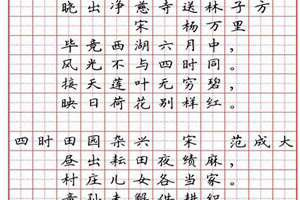 晓出净慈寺送林子方
宋 杨万里
毕竟西湖六月中，
风光不与四时同。
接天莲叶无穷碧，
映日荷花别样红。
四时田园杂兴 宋 范成大
昼出耘田夜绩麻，
村庄儿女各当家。